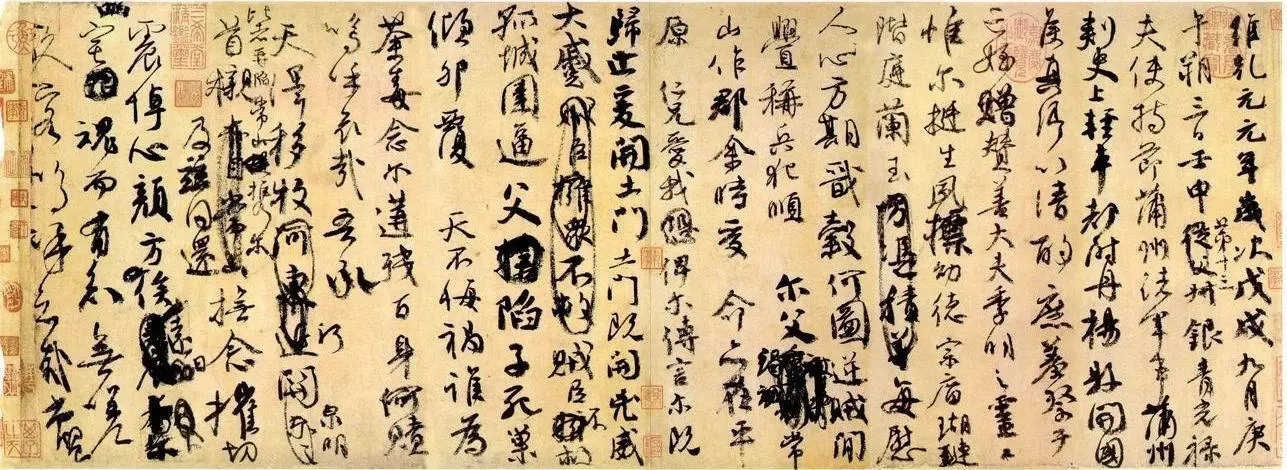 維乾元元年歲次戊戌九月庚
午朔三日壬申第十三叔銀青光祿
夫使持節蒲州諸軍事蒲州
刺史上輕車都尉丹楊縣開國
侯真卿以清酌庶羞祭于
亡姪贈贊善大夫季明之靈曰
惟爾挺生夙標幼德宗廟瑚璉
階庭蘭玉方憑積善每慰
人心方期戩穀何圖逆賊閒
釁稱兵犯順爾父竭誠常
山作郡余時受命亦在平
原仁兄愛我恐俾爾傳言爾既
歸止爰開土門土門既開凶威
大蹙賊臣擁衆不救賊臣不救
孤城圍逼父擒陷子死巢
傾卵覆天不悔禍誰為
荼毒念爾遘殘百身何贖
嗚呼哀哉吾承
天澤移牧河東近河關泉明
比者再陷常山攜爾
首櫬亦自常山撫念摧切
及茲同還
震悼心顏方俟遠日
宅魂而有知無嗟
久客嗚呼哀哉尚饗